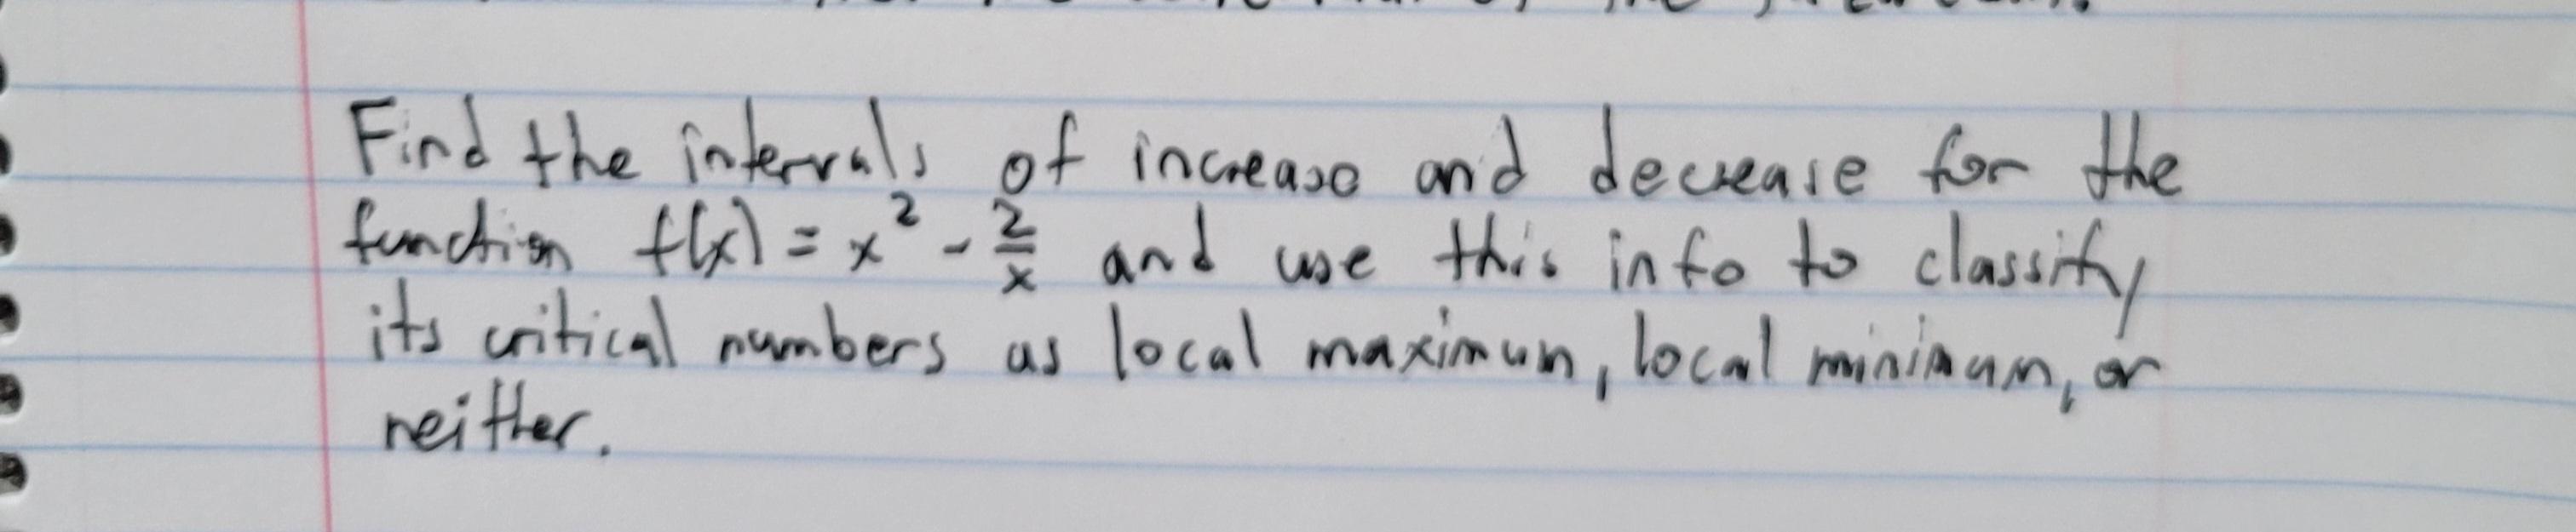 Find the intervals of increase and decrease for the
function f(x) = x² - 2/x and use this info to classify
its critical numbers as local maximum, local minimum, or
neither.